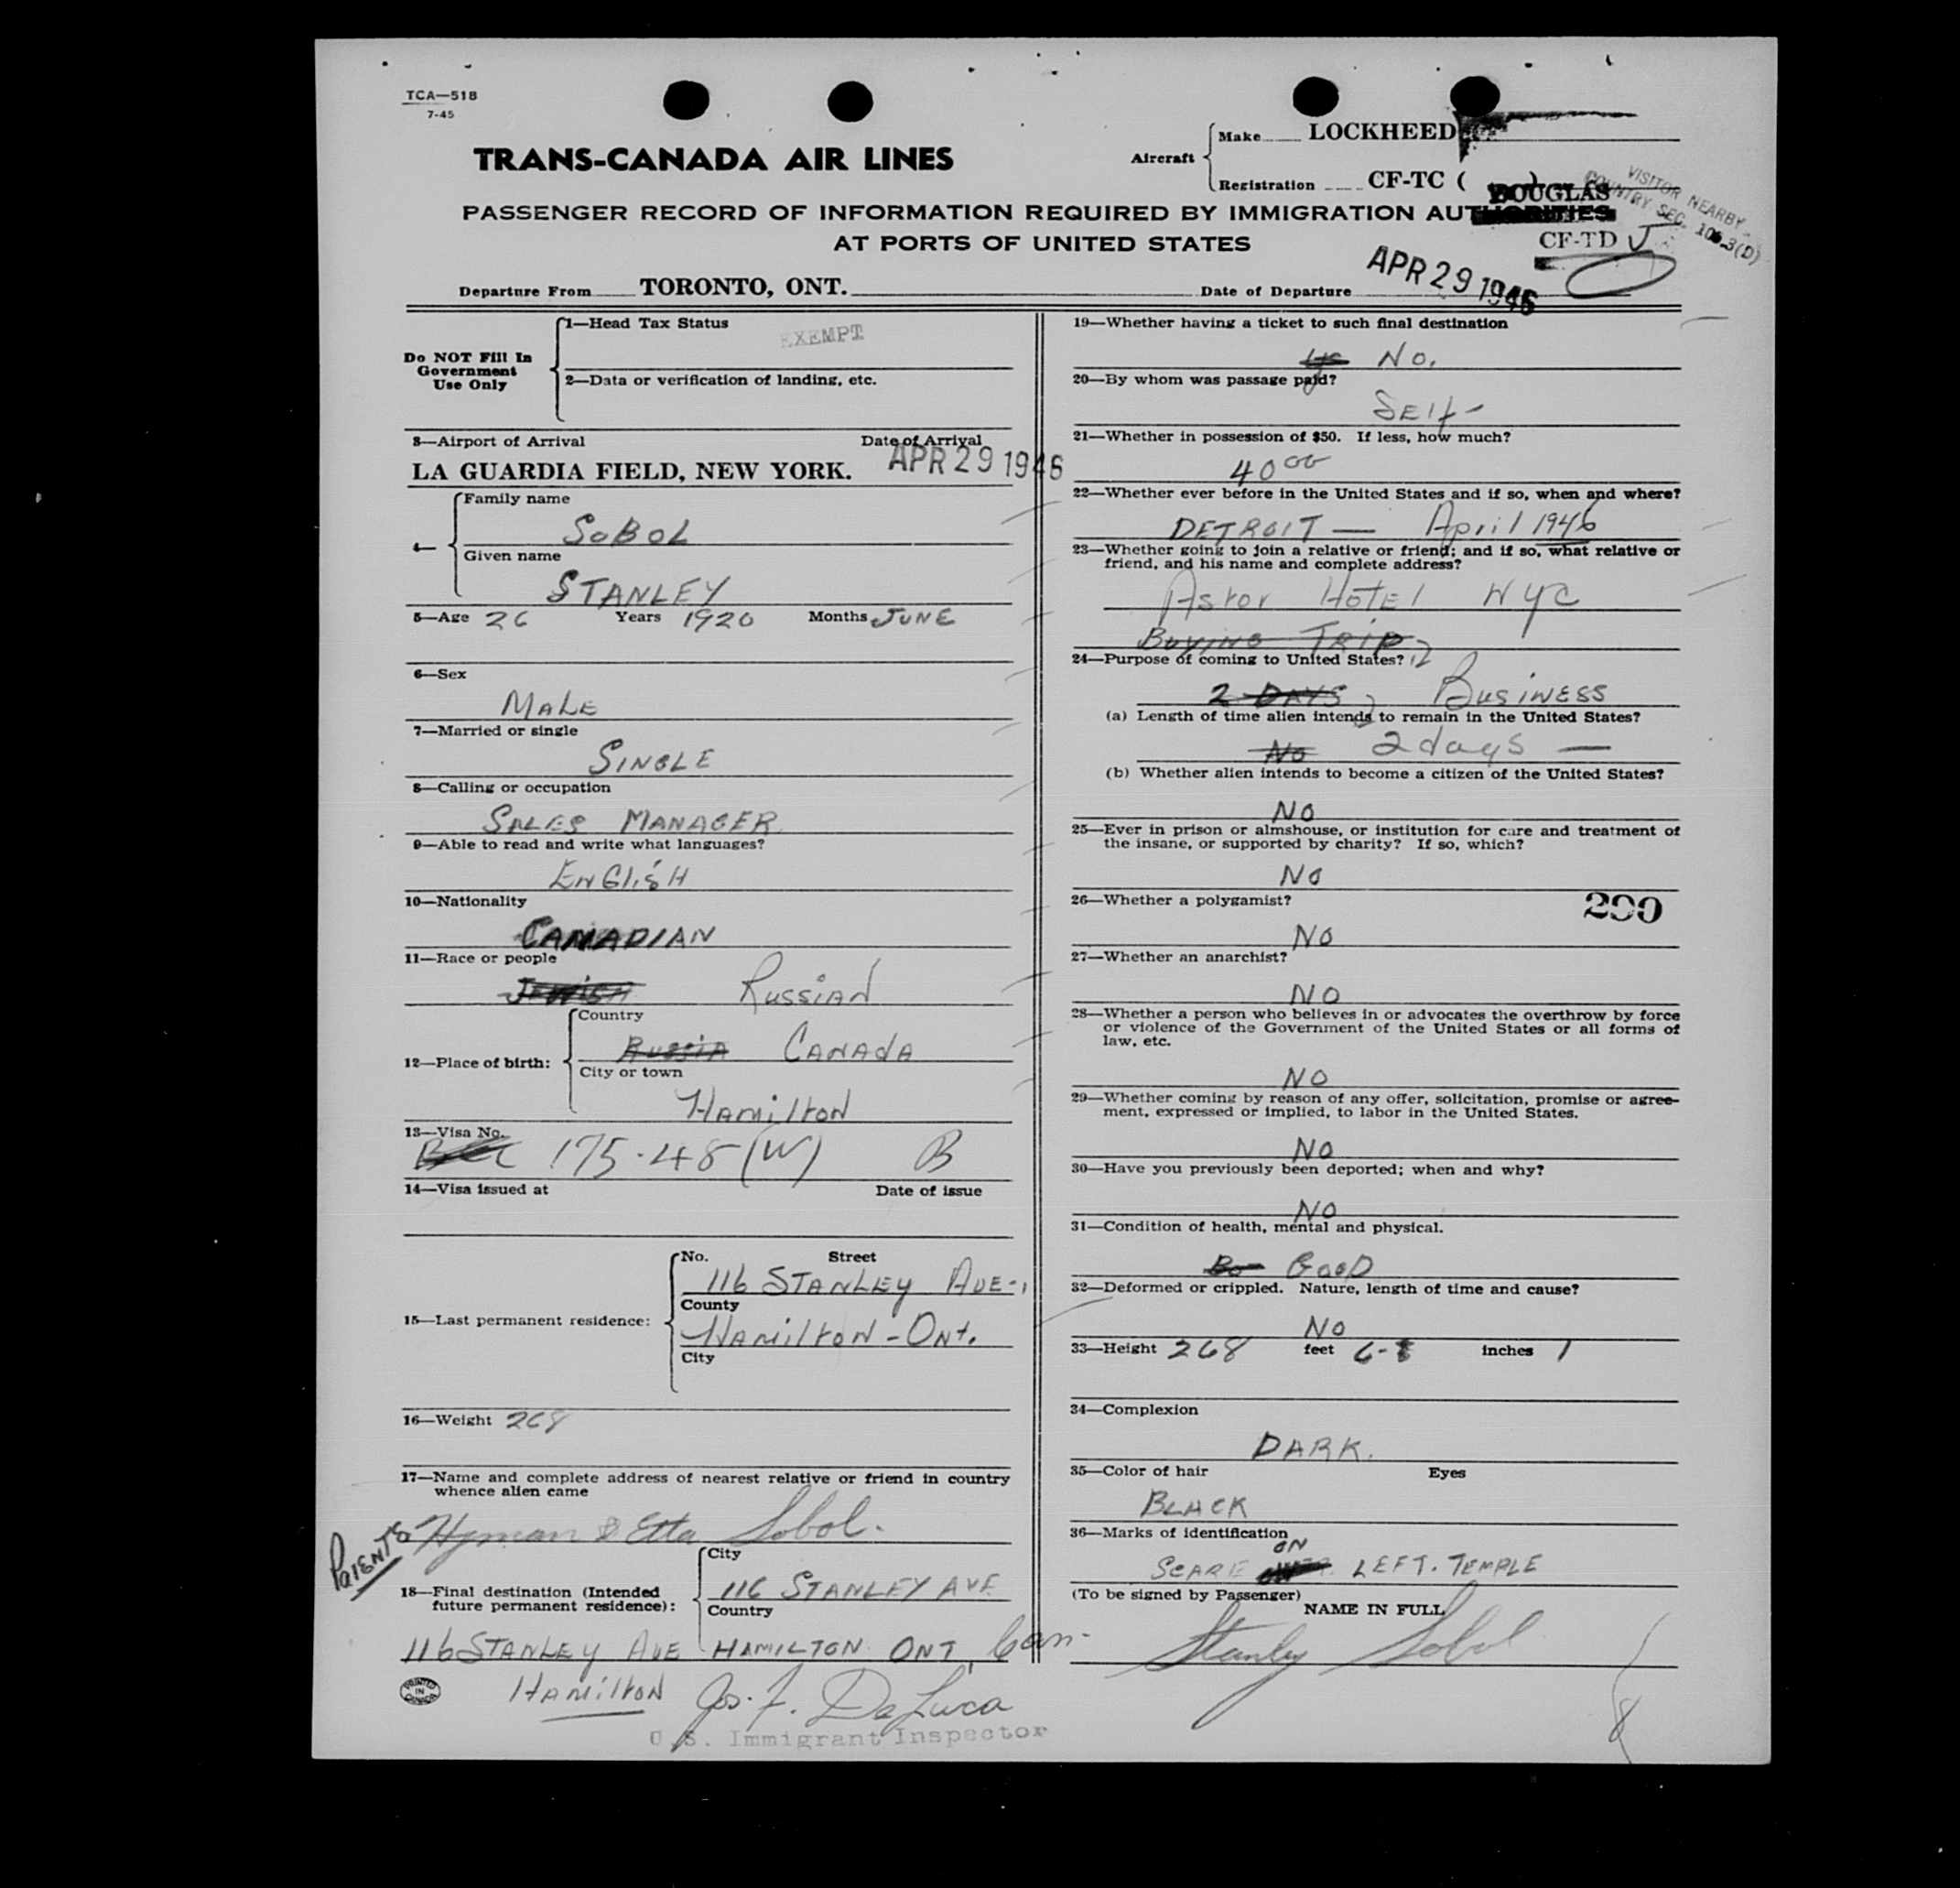 TCA—518
7-45
TRANS-CANADA AIR LINES
Aircraft
Make LOCKHEED
Registration CF-TC ( )
DOUGLAS
CF-TD J
VISITOR NEARBY
COUNTRY SEC. 106.3(D)
PASSENGER RECORD OF INFORMATION REQUIRED BY IMMIGRATION AUTHORITIES
AT PORTS OF UNITED STATES
Departure From TORONTO, ONT. Date of Departure APR 29 1946
Do NOT Fill In
Government
Use Only
1—Head Tax Status
EXEMPT
2—Data or verification of landing, etc.
3—Airport of Arrival Date of Arrival
LA GUARDIA FIELD, NEW YORK. APR 29 1946
4—
Family name
SOBOL
Given name
STANLEY
5—Age 26 Years 1920 Months JUNE
6—Sex
MALE
7—Married or single
SINGLE
8—Calling or occupation
SALES MANAGER
9—Able to read and write what languages?
ENGLISH
10—Nationality
CANADIAN
11—Race or people
JEWISH RUSSIAN
12—Place of birth:
Country
RUSSIA CANADA
City or town
HAMILTON
13—Visa No.
175.48 (W) B
14—Visa issued at Date of issue
15—Last permanent residence:
No. Street
116 STANLEY AVE-,
County
HAMILTON - ONT.
City
16—Weight 268
17—Name and complete address of nearest relative or friend in country
whence alien came
PARENTS Hyman & Etta Sobol.
18—Final destination (Intended
future permanent residence):
City
116 STANLEY AVE
Country
116 STANLEY AVE HAMILTON. ONT, Can-
PRINTED IN CANADA
HAMILTON Jos. F. DeLuca
U.S. Immigrant Inspector
19—Whether having a ticket to such final destination
yes No.
20—By whom was passage paid?
SELF-
21—Whether in possession of $50. If less, how much?
40 00
22—Whether ever before in the United States and if so, when and where?
DETROIT — April 1946
23—Whether going to join a relative or friend; and if so, what relative or
friend, and his name and complete address?
Astor HOTEL NYC
BUYING TRIP
24—Purpose of coming to United States?
2 DAYS BUSINESS
(a) Length of time alien intends to remain in the United States?
No 2 days —
(b) Whether alien intends to become a citizen of the United States?
NO
25—Ever in prison or almshouse, or institution for care and treatment of
the insane, or supported by charity? If so, which?
NO
26—Whether a polygamist?
290
NO
27—Whether an anarchist?
NO
28—Whether a person who believes in or advocates the overthrow by force
or violence of the Government of the United States or all forms of
law, etc.
NO
29—Whether coming by reason of any offer, solicitation, promise or agree-
ment, expressed or implied, to labor in the United States.
NO
30—Have you previously been deported; when and why?
NO
31—Condition of health, mental and physical.
GOOD
32—Deformed or crippled. Nature, length of time and cause?
NO
33—Height 268 feet 6- inches 1
34—Complexion
DARK.
35—Color of hair Eyes
BLACK
36—Marks of identification
SCARE ON LEFT. TEMPLE
(To be signed by Passenger)
NAME IN FULL
Stanley Sobol